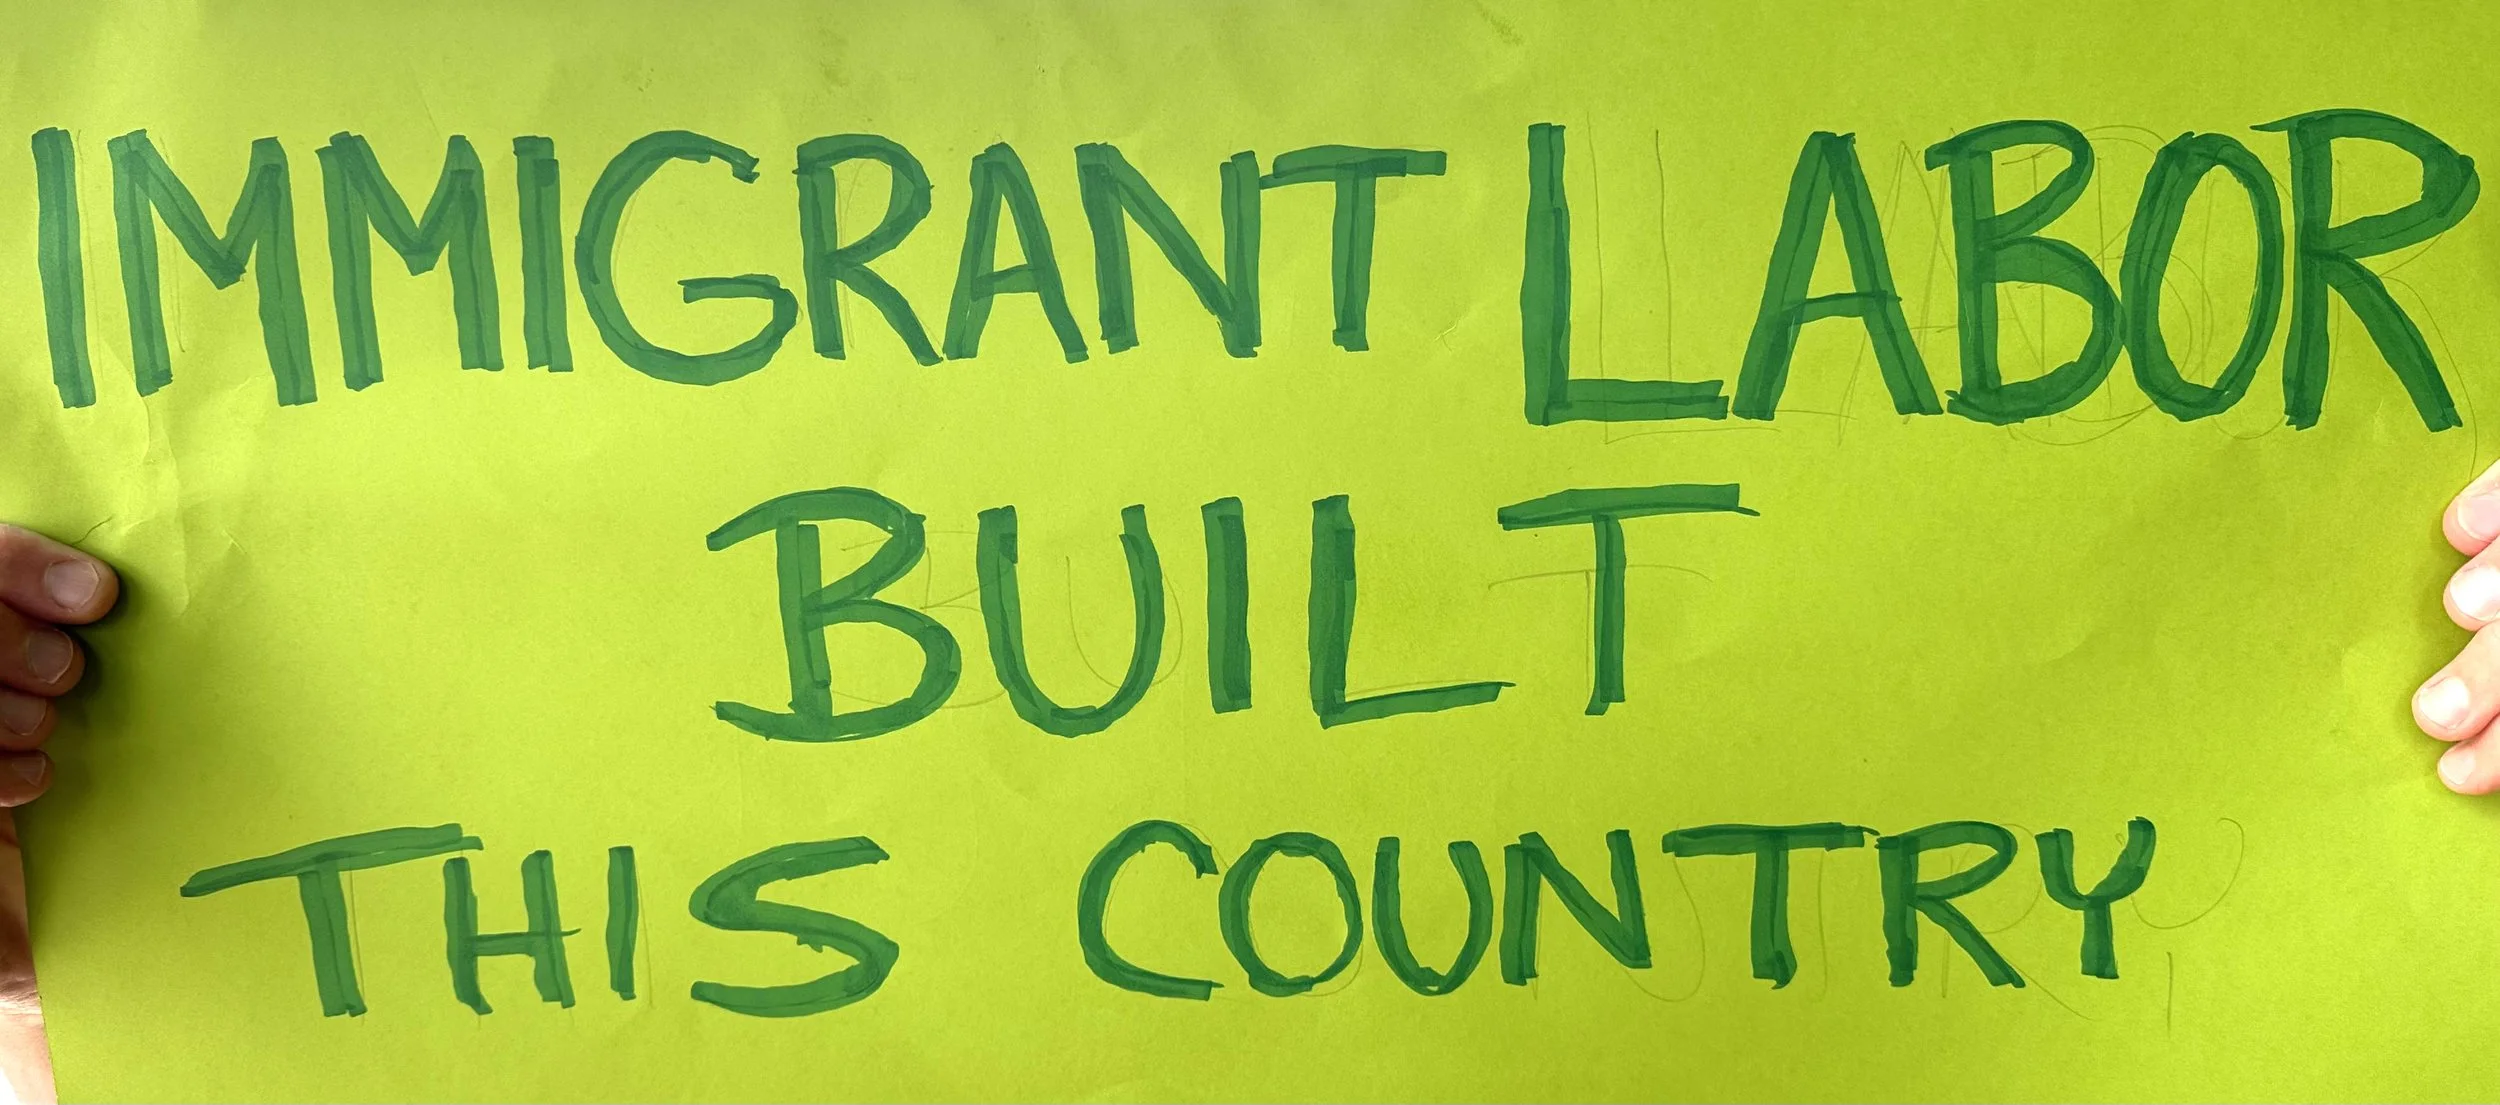 IMMIGRANT LABOR
BUILT
THIS COUNTRY